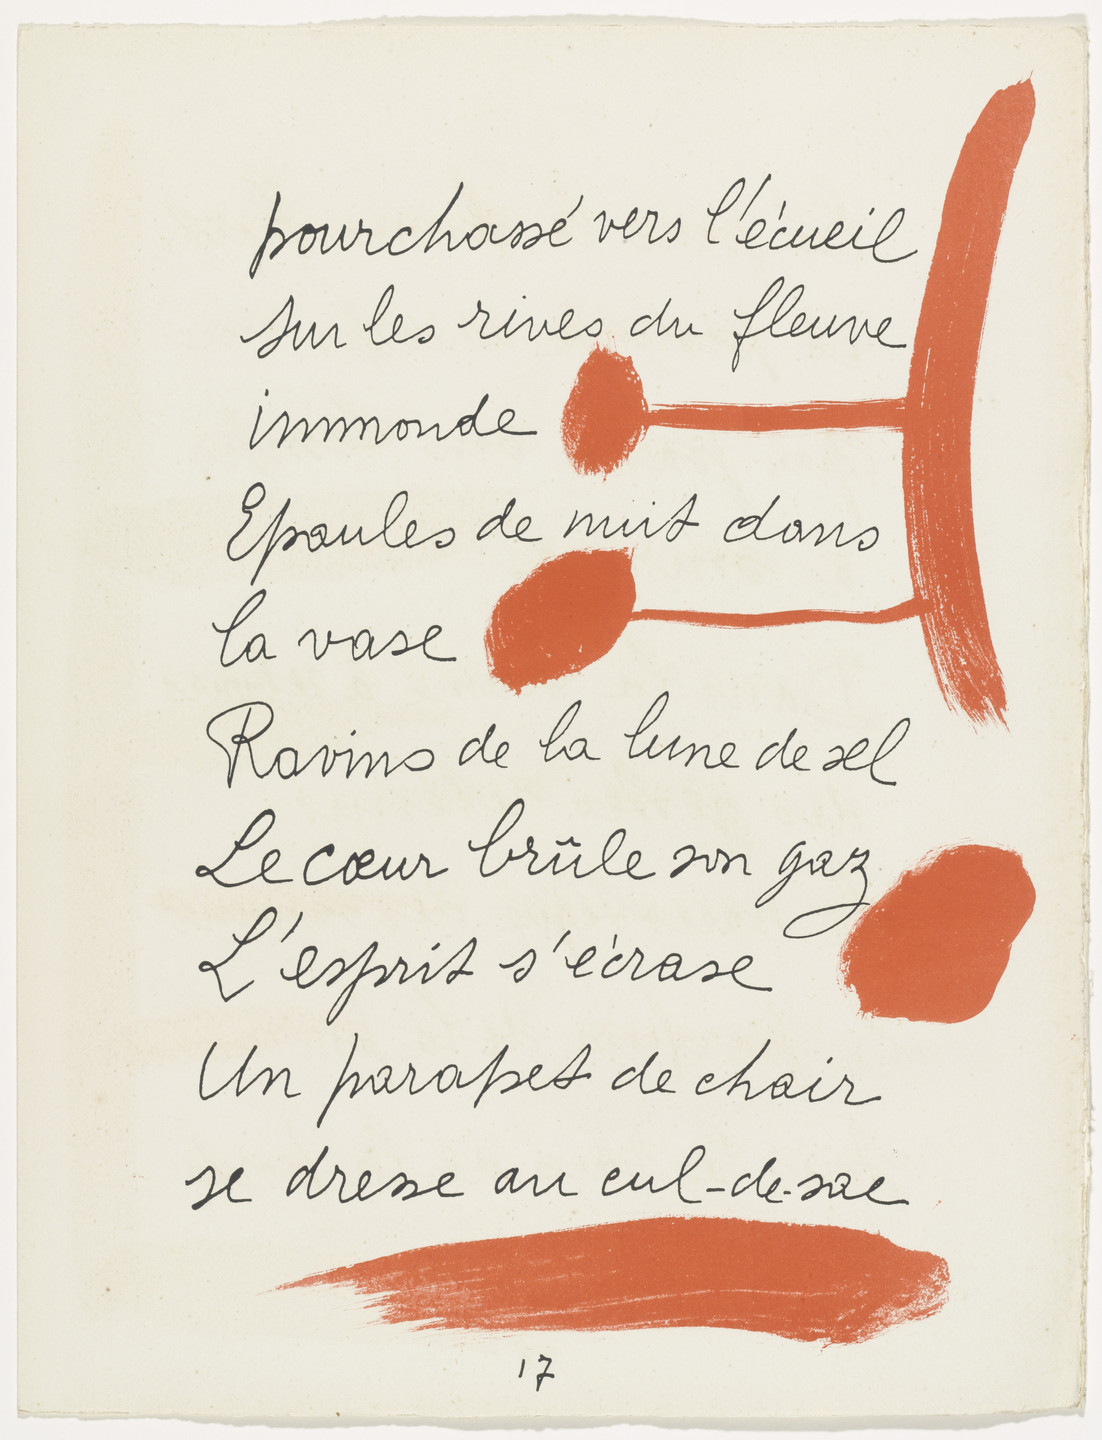 pourchassé vers l'écueil
sur les rives du fleuve
immonde
Epaules de nuit dans
la vase
Ravins de la lune de sel
Le cœur brûle son gaz
L'esprit s'écrase
Un parapet de chair
se dresse au cul-de-sac
17